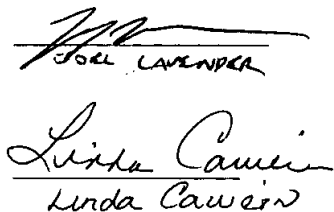 JOEL LAVENDER
Linda Cawein
Linda Cawein